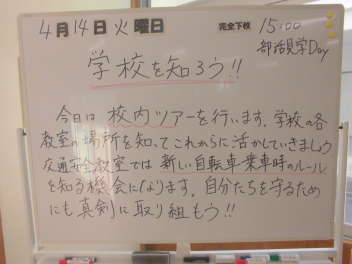 4月14日火曜日 完全下校 15:00
部活見学Day
学校を知ろう!!
今日は校内ツアーを行います。学校の各
教室の場所を知ってこれからに活かしていきましょう
交通安全教室では新しい自転車乗車時のルール
を知る機会になります。自分たちを守るため
にも真剣に取り組もう!!